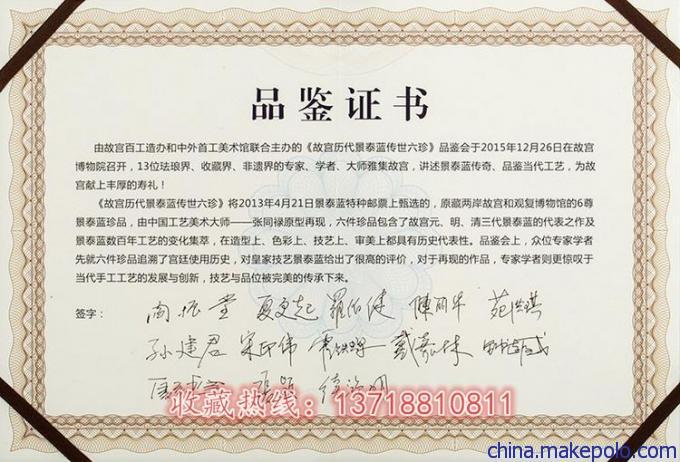 品鉴证书
由故宫百工造办和中外首工美术馆联合主办的《故宫历代景泰蓝传世六珍》品鉴会于2015年12月26日在故宫
博物院召开，13位珐琅界、收藏界、非遗界的专家、学者、大师雅集故宫，讲述景泰蓝传奇、品鉴当代工艺，为故
宫献上丰厚的寿礼！
《故宫历代景泰蓝传世六珍》将2013年4月21日景泰蓝特种邮票上甄选的，原藏两岸故宫和观复博物馆的6尊
景泰蓝珍品，由中国工艺美术大师——张同禄原型再现，六件珍品包含了故宫元、明、清三代景泰蓝的代表之作及
景泰蓝数百年工艺的变化集萃，在造型上、色彩上、技艺上、审美上都具有历史代表性。品鉴会上，众位专家学者
先就六件珍品追溯了宫廷使用历史，对皇家技艺景泰蓝给出了很高的评价，对于再现的作品，专家学者则更惊叹于
当代手工工艺的发展与创新，技艺与品位被完美的传承下来。
签字： 阎振堂 夏更起 羅伯健 陳丽华 苑洪琪
孙建君 宋印伟 霍铁辉 戴嘉林
收藏热线：13718810811
china.makepolo.com